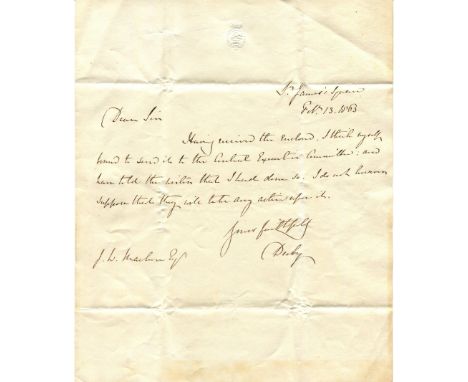 St James's Square
Feb. 13. 1863
Dear Sir
Having received the enclosed, I think myself
bound to send it to the Central Executive Committee: and
have told the writer that I have done so. I do not however
suppose that they will take any action upon it.
Yours faithfully
Derby
J. W. Maclure Esq